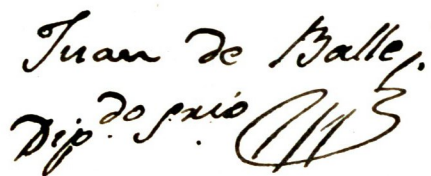 Juan de Balle.
Dip.do Srio.